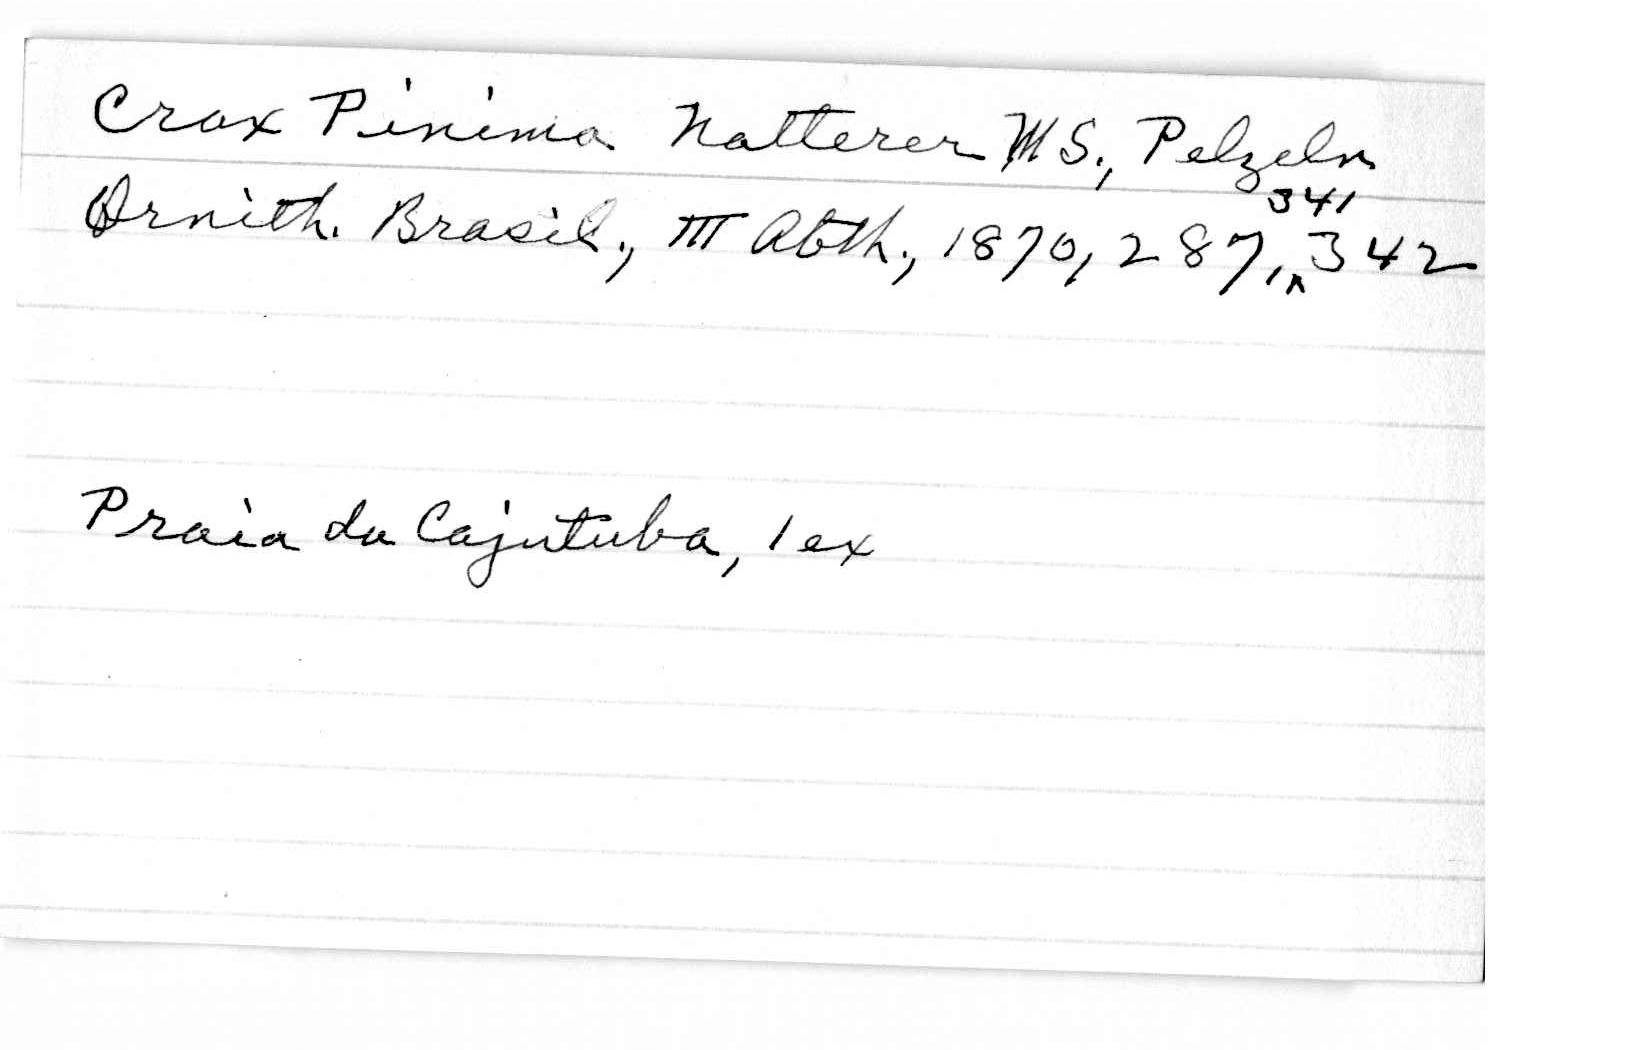 Crax Pinima Natterer MS., Pelzeln
Ornith. Brasil., III Abth., 1870, 287, 341, 342
Praia do Cajutuba, 1 ex